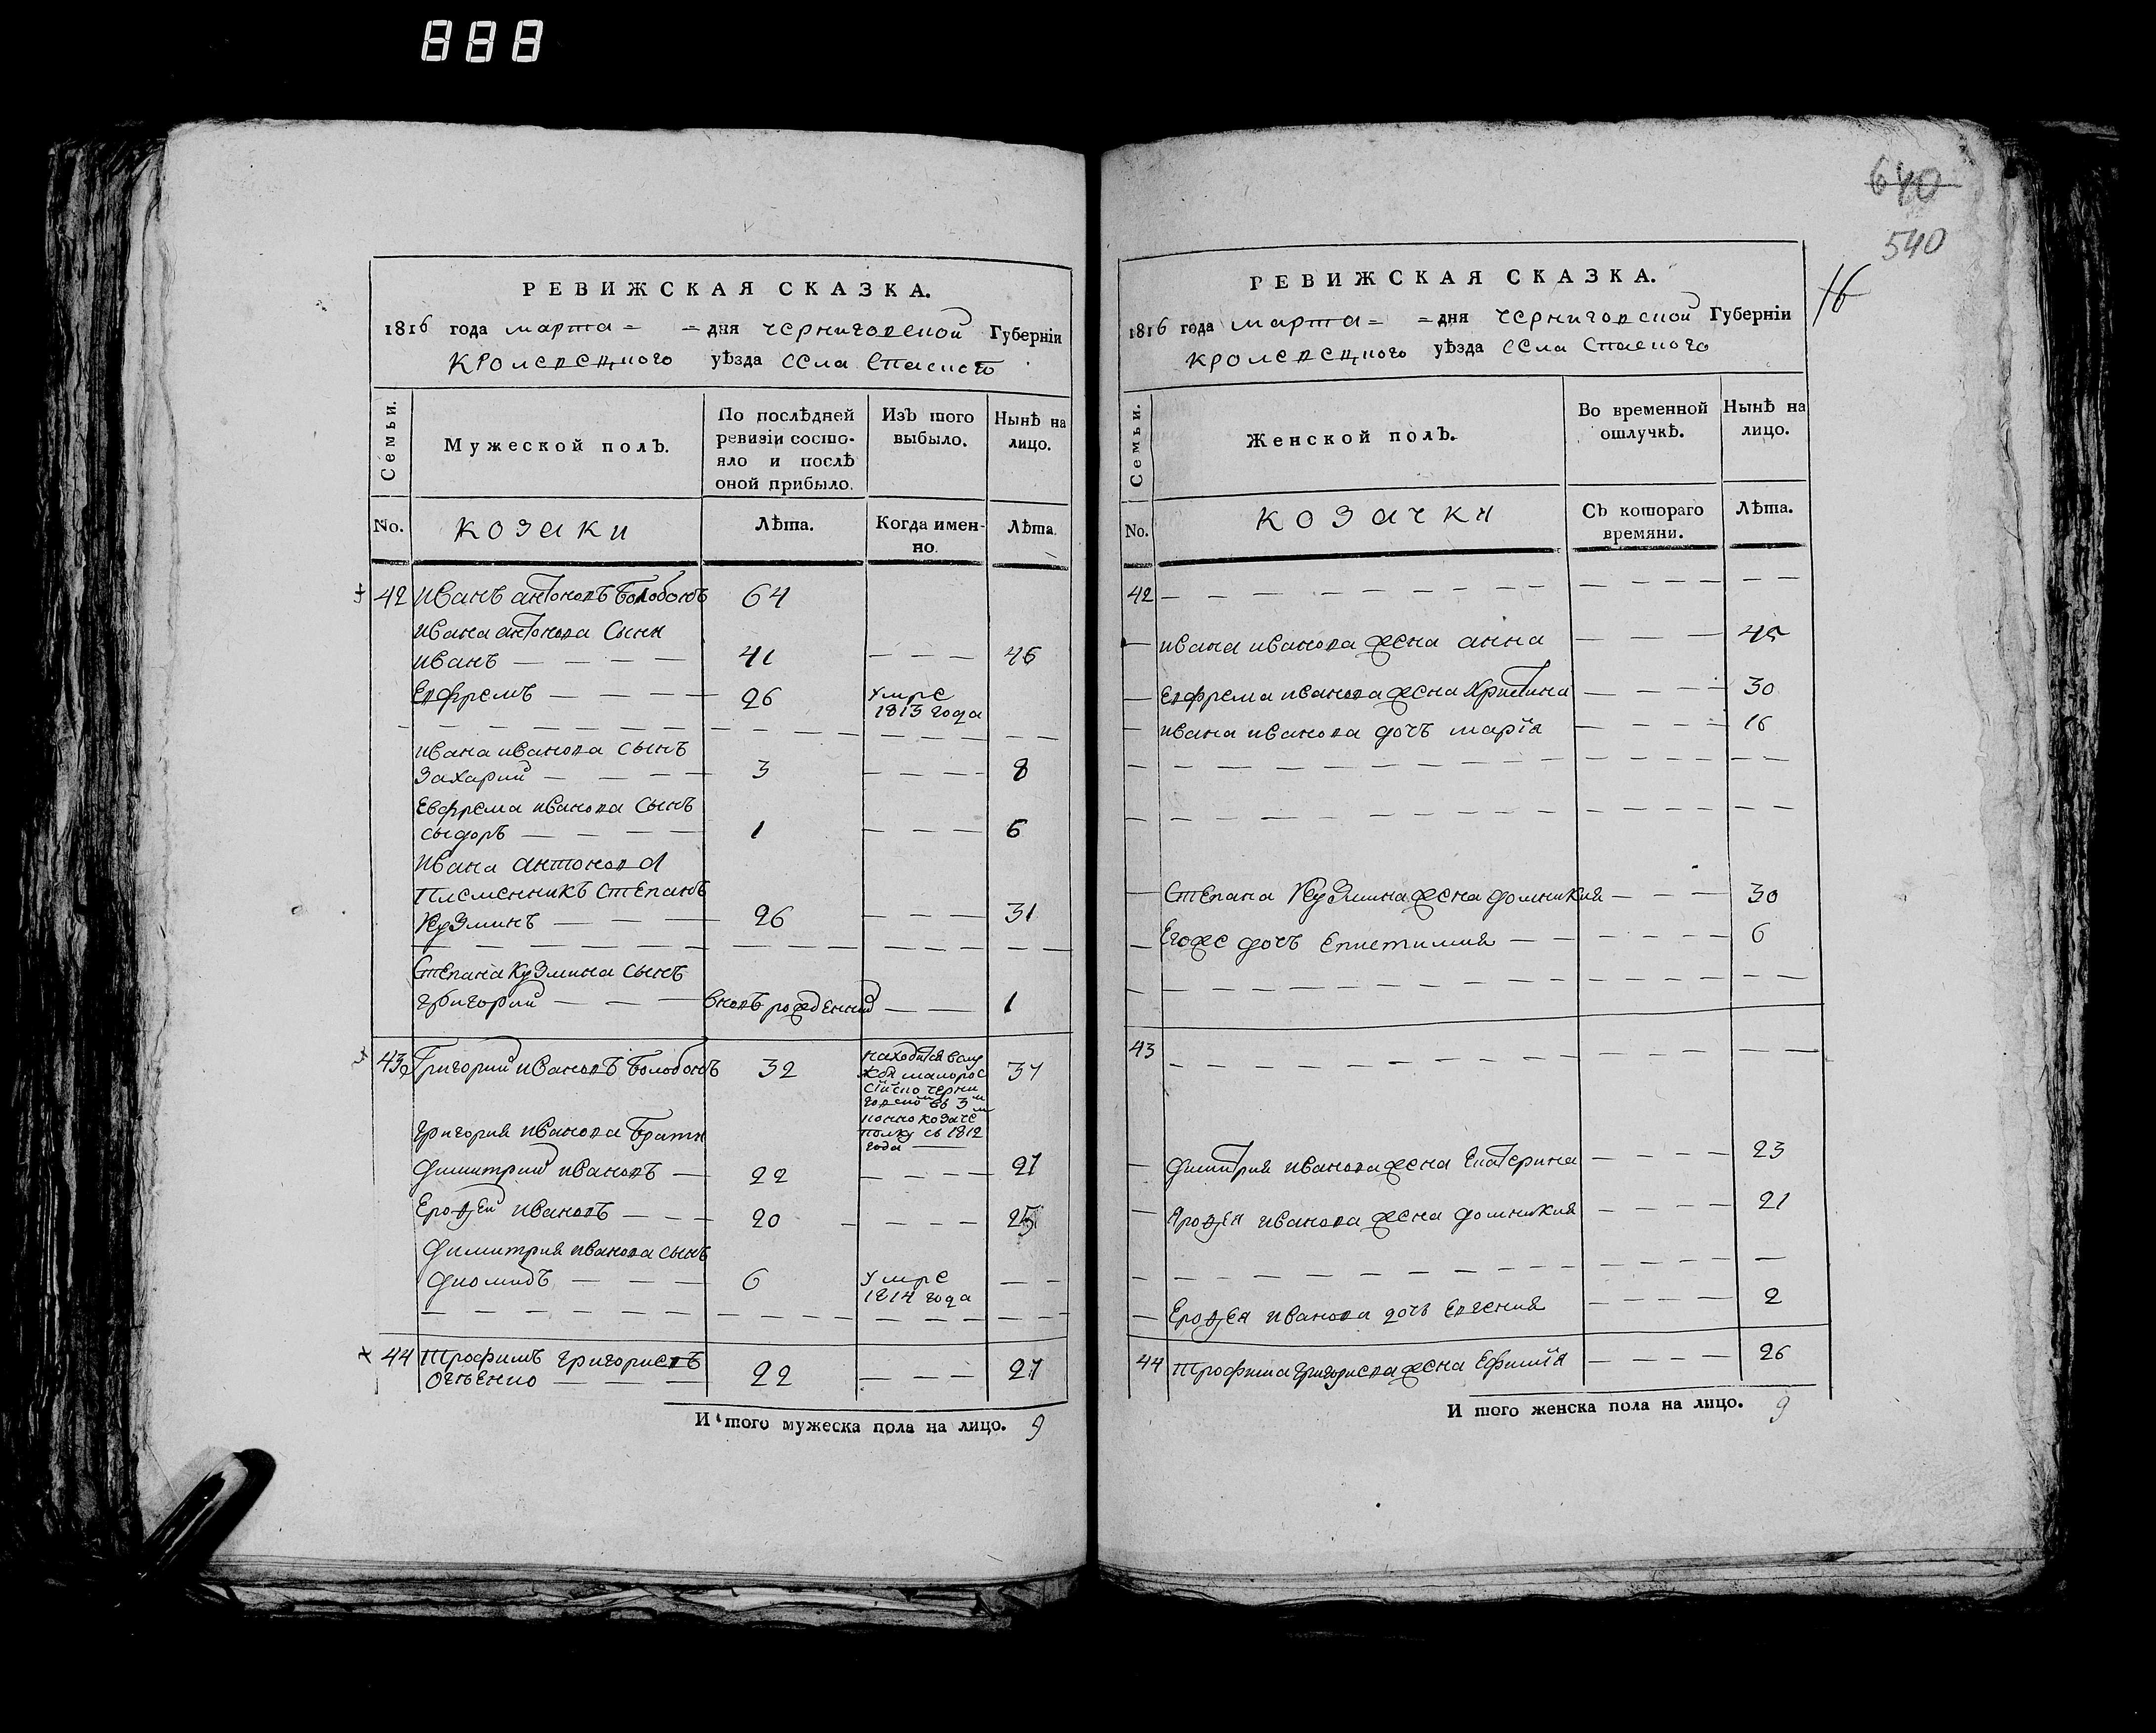 888
РЕВИЖСКАЯ СКАЗКА.
1816 года марта = = дня черниговской Губерніи
кролевецкого уѣзда села Спаского
Семьи.
Мужеской полъ.
По послѣдней ревизіи состояло и послѣ оной прибыло.
Изъ того выбыло.
Нынѣ на лицо.
No.
козаки
Лѣта.
Когда именно.
Лѣта.
42 Иванъ антоновъ Болобонъ 64
Ивана антонова сыни
иванъ — — — — 41 — — — 46
Евфремъ — — — — 26 умре 1813 года
Ивана иванова сынъ
Захарий — — — — 3 — — — — 8
Евфрема иванова сынъ
сыдоръ — — — — 1 — — — — 6
Ивана антонова
племенникъ степанъ
Кузминъ — — — 26 — — — 31
Степана Кузмина сынъ
григорий — — — вновь рожденний — — 1
43 Григорий ивановъ Болобонъ 32
находится в слу
жбѣ малорос
сійско черни
говской въ 3м
конно козаче
полку съ 1812
года
37
григория иванова Брати
димитрий ивановъ — 22 — — — — 27
Ерофей ивановъ — — — 20 — — — — 25
димитрия иванова сынъ
диомидъ — — — 6 умре 1814 года — —
44 Трофимъ григориевъ 22 — — — 27
Огіенко — — —
И того мужеска пола на лицо. 9
640
540
16
РЕВИЖСКАЯ СКАЗКА.
1816 года марта = = дня черниговской Губерніи
кролевецкого уѣзда села Спаского
Семьи.
Женской полъ.
Во временной отлучкѣ.
Нынѣ на лицо.
No.
козачки
Съ котораго времяни.
Лѣта.
42
— ивана иванова жена анна — — — 45
— Евфрема иванова жена Христина — — — — 30
— ивана иванова дочъ марія — — — — 16
— Степана Кузмина жена домникия — — — 30
— Егоже дочъ Епистимия — — — — — — 6
43
— димитрия иванова жена Екатерина — — — — 23
— Ярофея иванова жена домникия — — — — 21
— Ерофея иванова дочъ Евгения — — — — 2
44 трофима григориева жена Ефимія — — — — 26
И того женска пола на лицо. 9